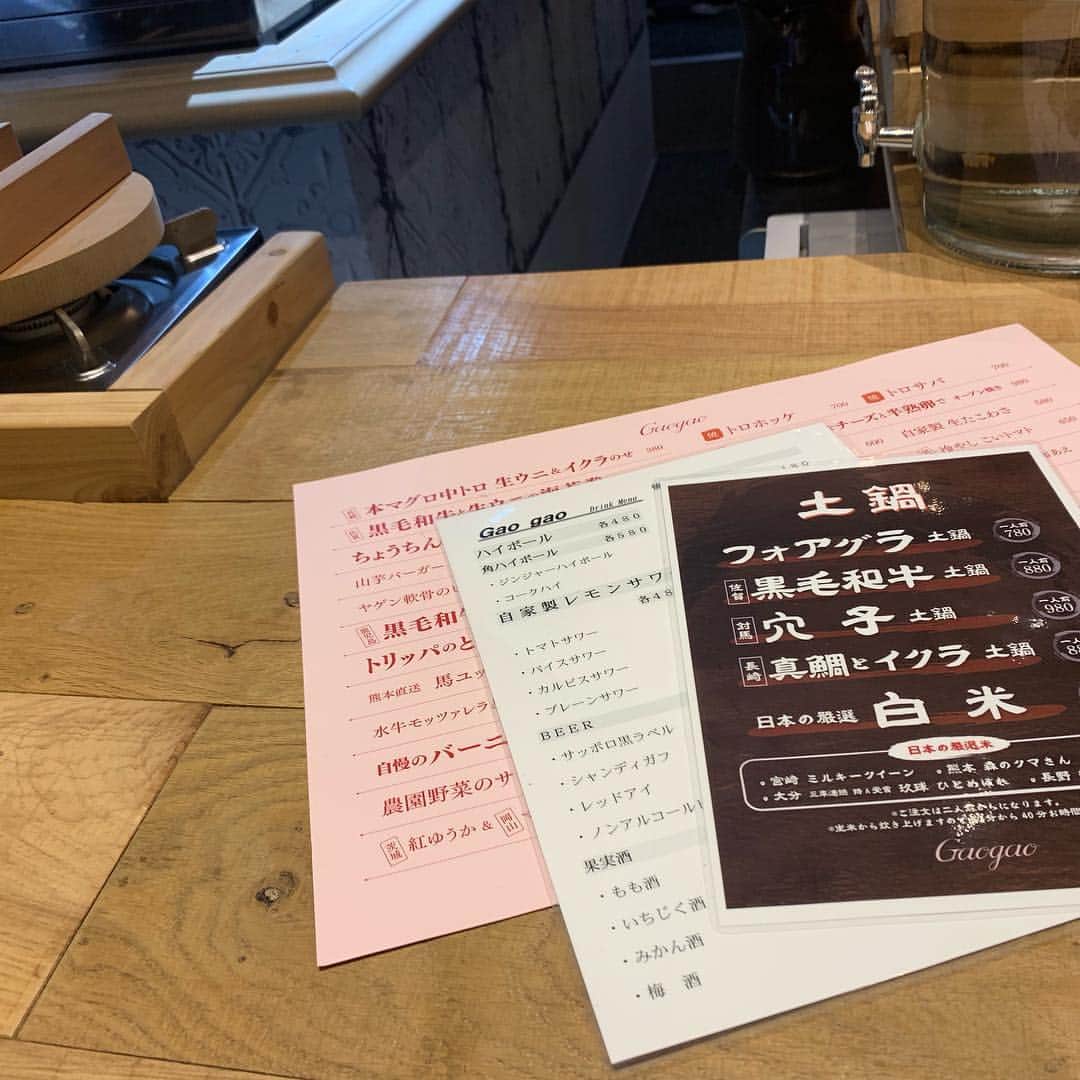 Gaogao
本マグロ中トロ 生ウニ&イクラのせ 980
黒毛和牛と生ウニの
ちょうちん
山芋バーガー
ヤゲン軟骨の
鹿児島 黒毛和牛
トリッパのと
熊本直送 馬ユッ
水牛モッツァレラ
自慢のバーニ
農園野菜のサ
茨城 紅ゆうか & 岡山
焼 トロサバ 700
焼 トロホッケ 700
チーズと半熟卵で オーブン焼き 980
600 自家製 生たこわさ 580
冷やしこいトマト 650
Gao gao Drink Menu
ハイボール 各480
角ハイボール 各580
・ジンジャーハイボール
・コークハイ
自家製レモンサワ
各48
・トマトサワー
・バイスサワー
・カルピスサワー
・プレーンサワー
BEER
・サッポロ黒ラベル
・シャンディガフ
・レッドアイ
・ノンアルコール
果実酒
・もも酒
・いちじく酒
・みかん酒
・梅 酒
土鍋
フォアグラ 土鍋 一人前 780
佐賀 黒毛和牛 土鍋 一人前 880
対馬 穴子 土鍋 一人前 980
長崎 真鯛とイクラ 土鍋
日本の厳選 白米
日本の厳選米
・宮崎 ミルキークイーン ・熊本 森のクマさん
・大分 玖球 ひとめぼれ ・長野
※ご注文は二人前からになります。
から40分お時間
Gaogao